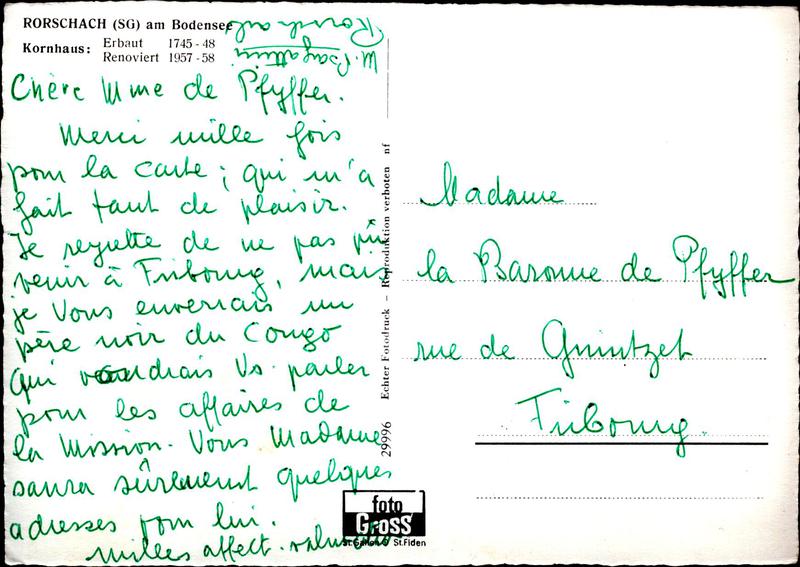 RORSCHACH (SG) am Bodensee
Kornhaus: Erbaut 1745-48
Renoviert 1957-58
M. Bagattini
Rorschach
Chère Mme de Pfyffer.
Merci mille fois
pour la carte; qui m'a
fait tant de plaisir.
Je regrette de ne pas
venir à Fribourg, mais
je Vous enverrais un
père noir du Congo
qui voudrais Vs. parler
pour les affaires de
la Mission. Vous Madame
saura sûrement quelques
adresses pour lui.
Milles affect.
29996 Echter Fotodruck – Reproduktion verboten nf
Madame
la Baronne de Pfyffer
rue de Guintzet
Fribourg.
foto
GROSS
St.Gallen St.Fiden